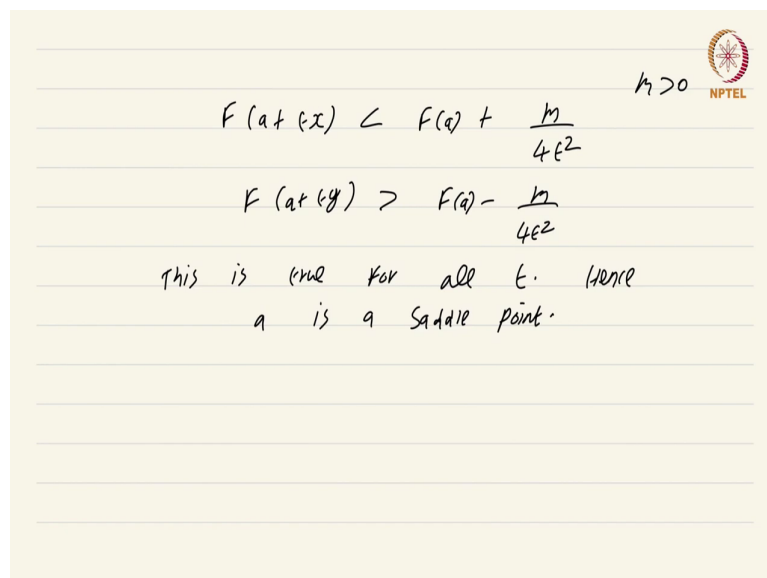 m>0
NPTEL
F(a+tx) < F(a) + m/4t²
F(a+ty) > F(a) - m/4t²
This is true for all t. Hence
a is a saddle point.